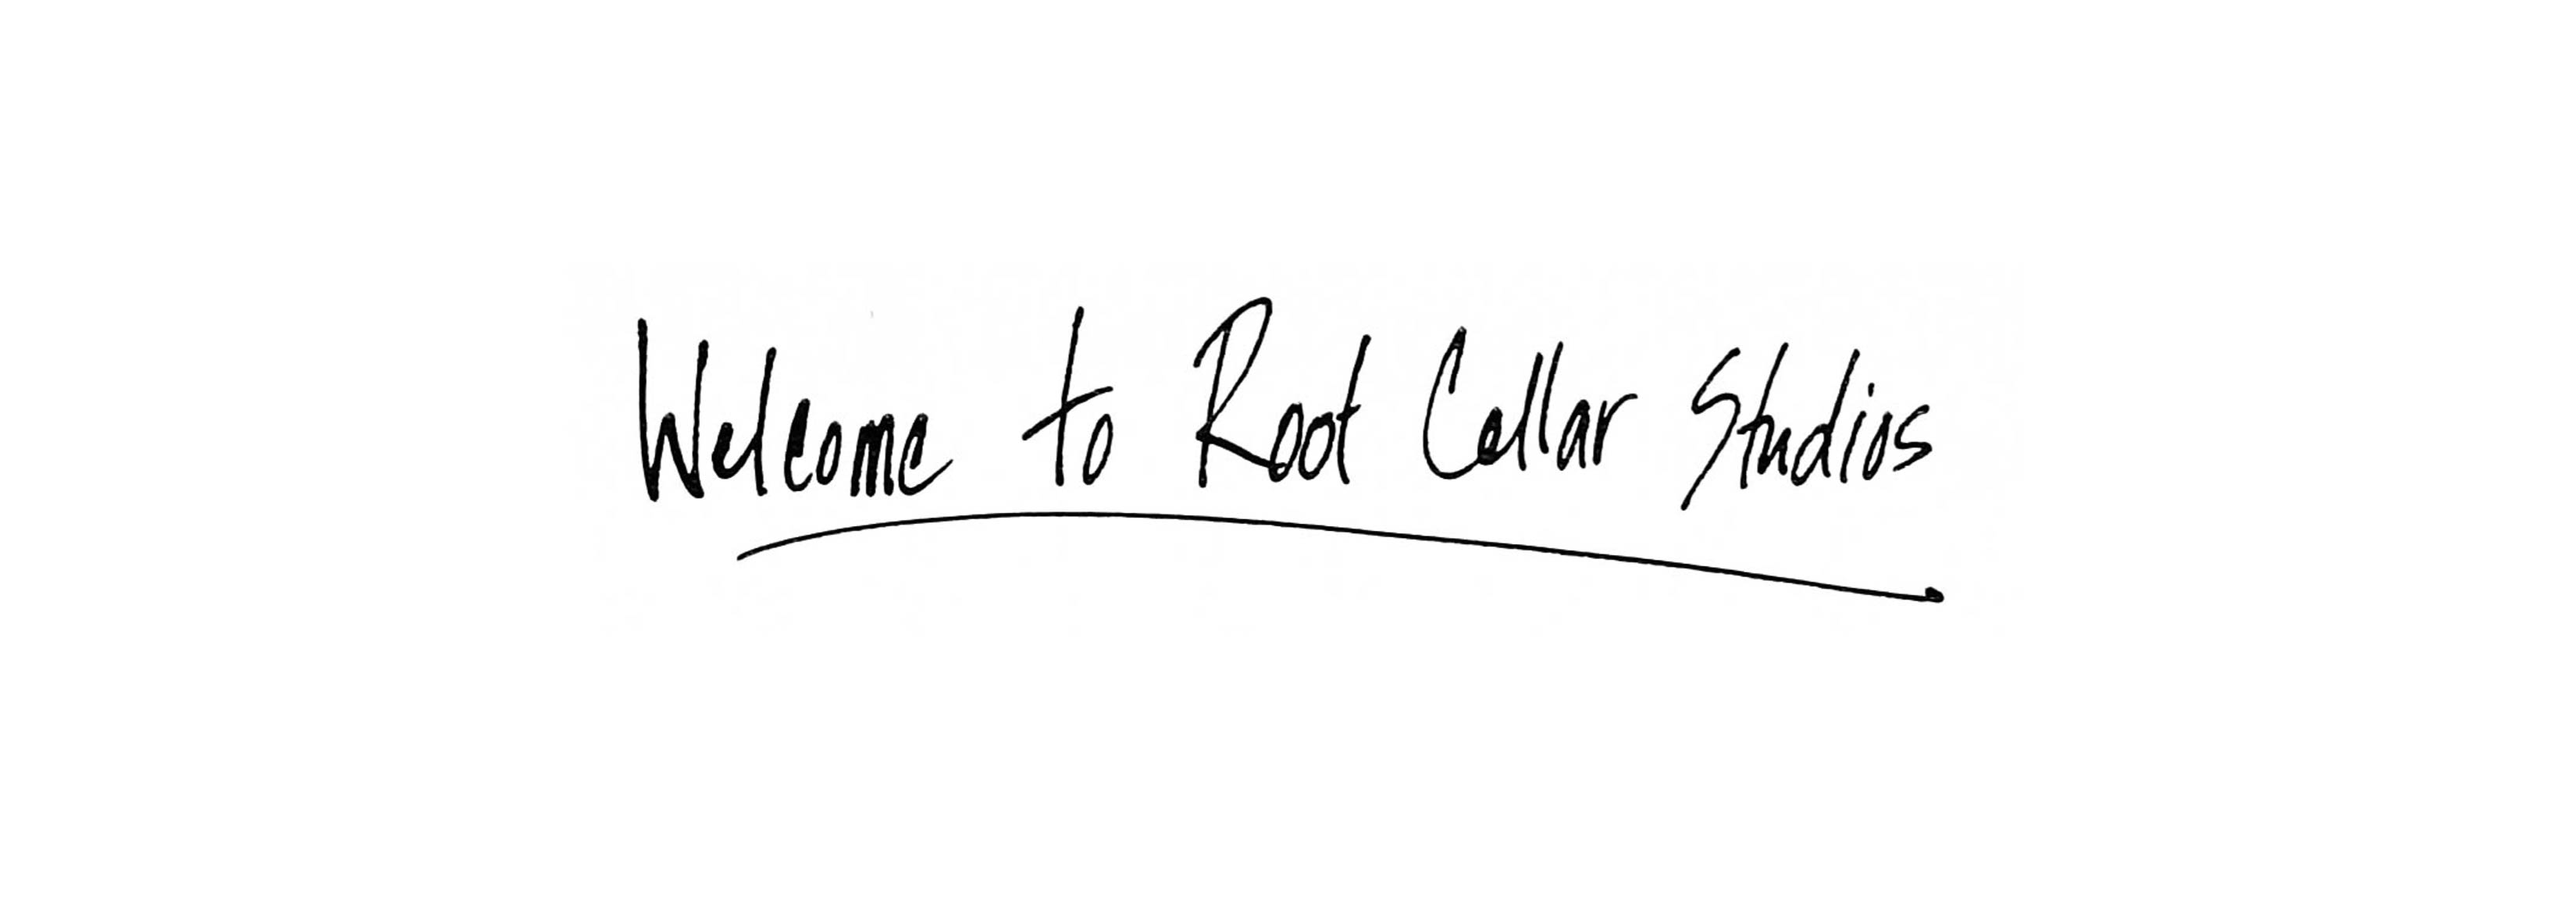 Welcome to Root Cellar Studios